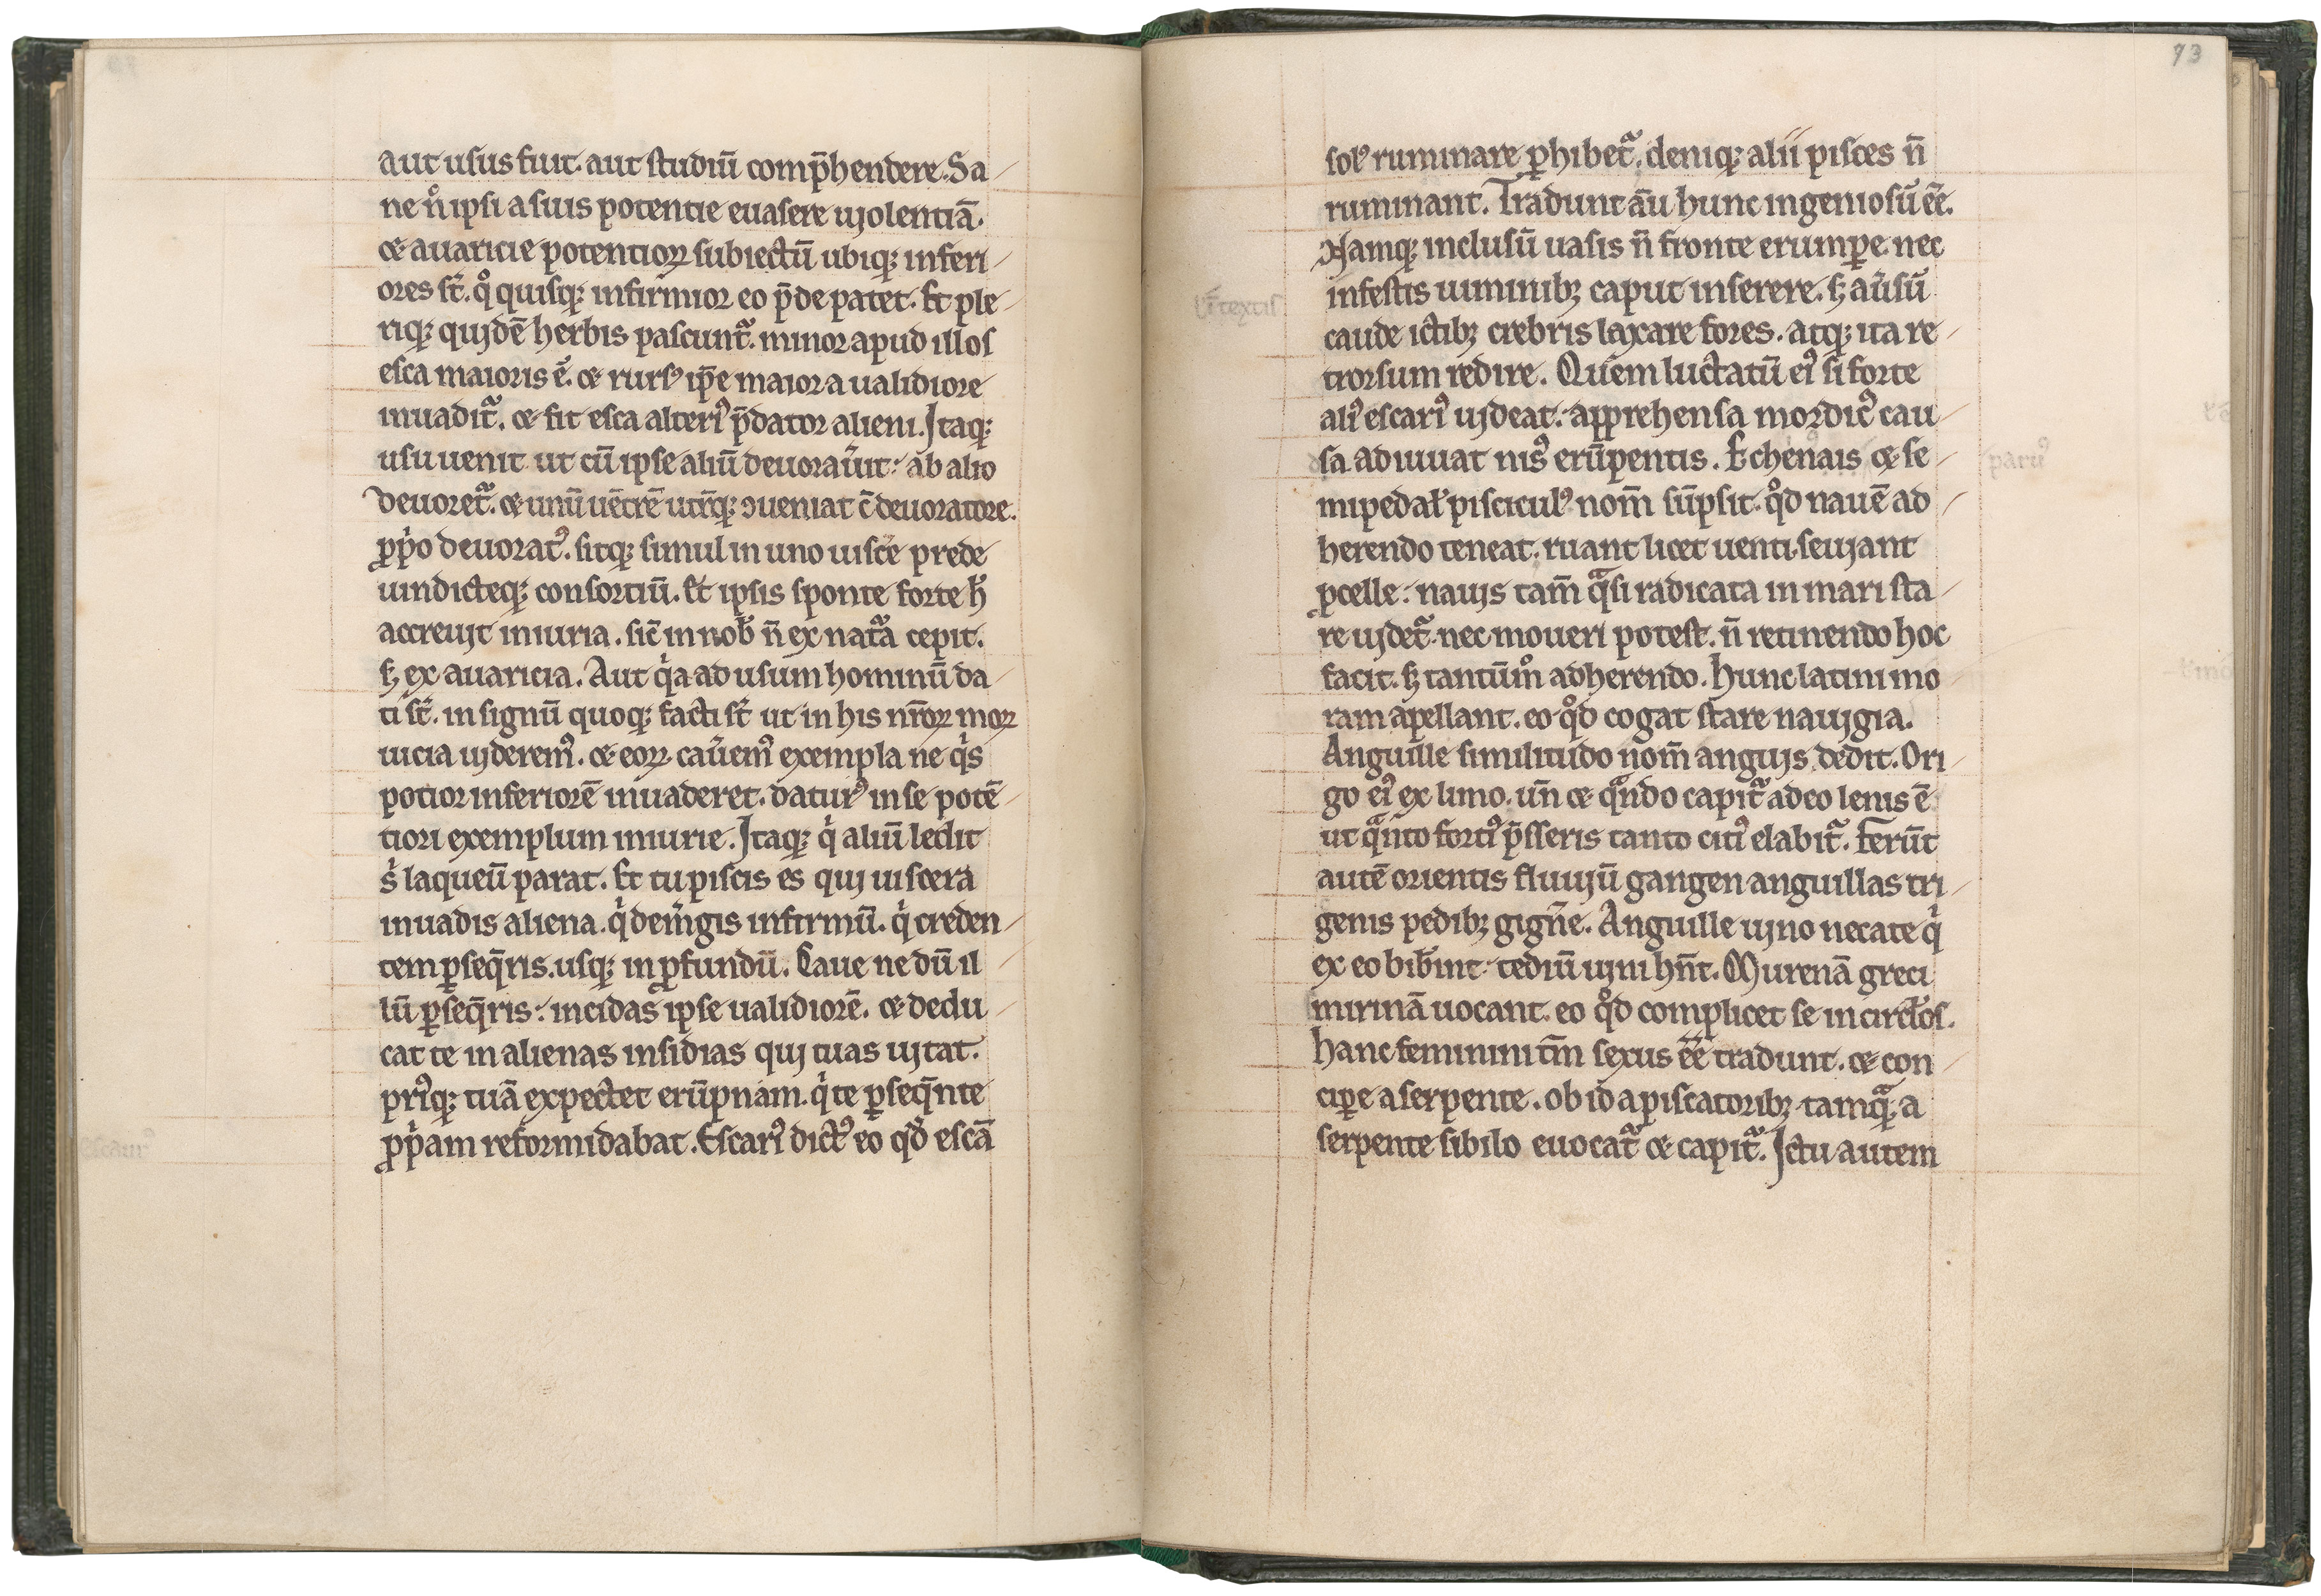 aut usus fuit. aut studiū comp̄hendere. Sa
ne n̊ ipsi a suis potentie euasere uiolentiā.
⁊ auaricie potentioꝝ subiectū ubiqꝫ inferi
ores st̄. q̊ quisqꝫ infirmior eo p̄de patet. Et ple
riqꝫ quidē herbis pascunt᷑. minor apud illos
esca maioris ē. ⁊ rursꝰ ip̄e maior a ualidiore
inuadit᷑. ⁊ fit esca alteriꝰ p̄dator alieni. Itaqꝫ
usu uenit ut cū ipse aliū deuorau̅it. ab alio
deuoret᷑. ⁊ unū uētrē ut̅qꝫ ꝯueniat c̄ deuoratore.
ꝓp̍o deuoratꝰ. sitqꝫ simul in uno uisc̅e prede
uindicteqꝫ consortiū. Et ipsis sponte forte h̅
accreuit iniuria. sic̄ in nob̅ n̄ ex nat᷑a cepit.
ꝫ ex auaricia. Aut q̍a ad usum hominū da
ti st̄. in signū quoqꝫ facti st̄ ut in his nr̄oꝝ moꝝ
uicia uideremꝰ. ⁊ eoꝝ cau̅emꝰ exempla ne q̍s
potior inferiorē inuaderet. daturꝰ in se potē
tiori exemplum iniurie. Itaqꝫ q̍ aliū ledit
s̍ laqueū parat. Et tu piscis es qui uiscera
inuadis aliena. q̍ dem̅gis infirmū. q̍ creden
tem ꝑseq̄ris. usqꝫ in ꝓfundū. Caue ne dū il
lū ꝑseq̄ris. incidas ipse ualidiorē. ⁊ dedu
cat te in alienas insidias qui tuas uitat.
priꝰqꝫ tuā expectet erūpnam. q̍ te ꝑseq̄nte
ꝓp̍am reformidabat. Escariꝰ dictꝰ eo qd̊ escā
73
solꝰ ruminare ꝑhibet᷑. deniqꝫ alii pisces n̄
ruminant. Tradunt āu hunc ingeniosū ēe.
Namqꝫ inclusū uasis n̄ fronte erumꝑe. nec
infestis uiminibꝫ caput inserere. ꝫ au̅sū
ur̄ textis
caude ictibꝫ crebris laxare fores. atqꝫ ita re
trorsum redire. Quem luctatū eiꝰ si forte
aliꝰ escariꝰ uideat. apprehensa mordicꝰ cau
sa adiuuat nisꝰ erūpentis. Echenais ⁊ se
paruꝰ
mipedał pisciculꝰ nom̄ sūpsit. q̊d nauē ad
herendo teneat. ruant licet uenti. seuiant
ꝓcelle. nauis tam̄ q᷑si radicata in mari sta
re uidet᷑. nec moueri potest. n̄ retinendo hoc
facit. ꝫ tantūm̊ adherendo. Hunc latini mo
ram apellant. eo q̊d cogat stare nauigia.
Anguille similitudo nom̄ anguis dedit. Ori
go eiꝰ ex limo. un̄ ⁊ q᷑ndo capit᷑ adeo lenis ē
ut q᷑nto fortiꝰ p̄sseris tanto citiꝰ elabit᷑. Ferūt
autē orientis fluuiū gangen anguillas tri
genis pedibꝫ gign̅e. Anguille uino necate q̍
ex eo bib̅int. tediū uini hn̄t. Murenā greci
mirinā uocant. eo q̊d complicet se in circłos.
Hanc feminini tm̄ sexus ēe tradunt. ⁊ con
ciꝑe a serpente. ob id a piscatoribꝫ tamq᷑ a
serpente sibilo euocat᷑ ⁊ capit᷑. Ictu autem